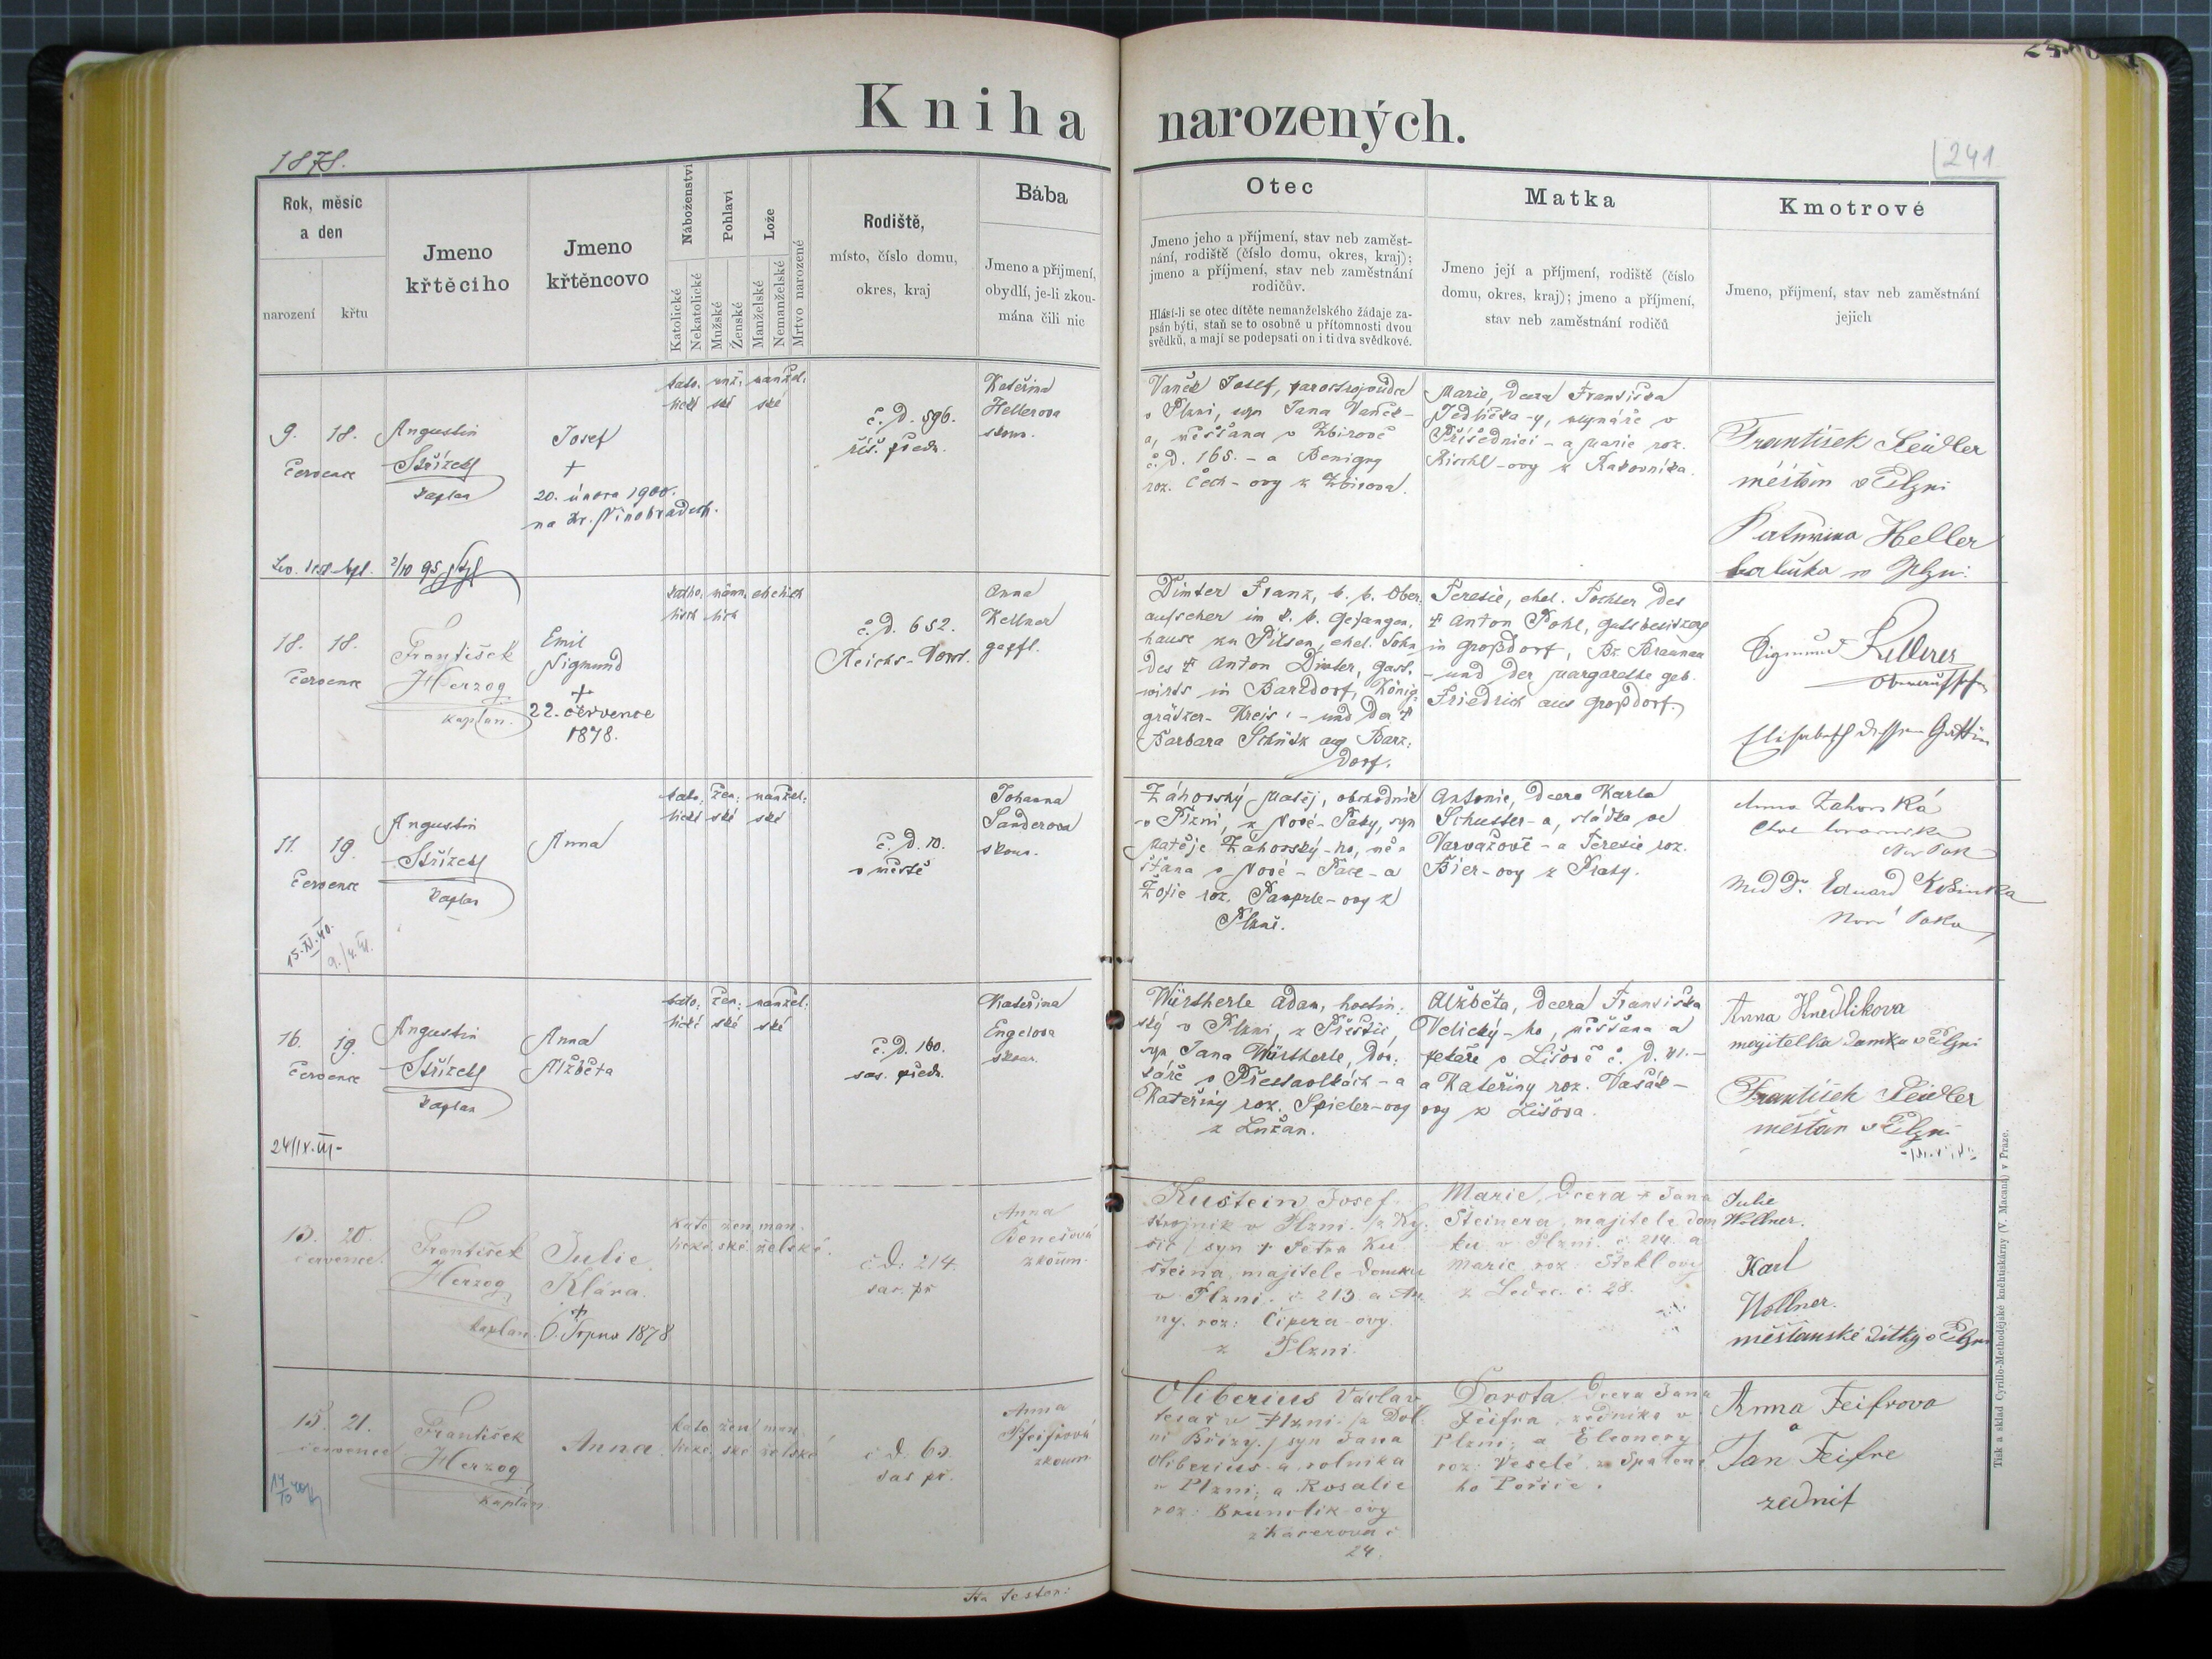 Kniha narozených.
1878.
241
Rok, měsíc
a den
narození
křtu
Jmeno
křtěcího
Jmeno
křtěncovo
Náboženství
Katolické
Nekatolické
Pohlaví
Mužské
Ženské
Lože
Manželské
Nemanželské
Mrtvo narozené
Rodiště,
místo, číslo domu,
okres, kraj
Bába
Jmeno a příjmení,
obydlí, je-li zkou-
mána čili nic
Otec
Jmeno jeho a příjmení, stav neb zaměst-
nání, rodiště (číslo domu, okres, kraj);
jmeno a příjmení, stav neb zaměstnání
rodičův.
Hlásí-li se otec dítěte nemanželského žádaje za-
psán býti, staň se to osobně u přítomnosti dvou
svědků, a mají se podepsati on i ti dva svědkové.
Matka
Jmeno její a příjmení, rodiště (číslo
domu, okres, kraj); jmeno a příjmení,
stav neb zaměstnání rodičů
Kmotrové
Jmeno, příjmení, stav neb zaměstnání
jejich
9. 18.
července
Augustin
Střízek
kaplan
Josef
+
20. února 1900.
na Kr. Vinohradech.
kato, muž: manžel:
lické ské ské
č. d. 596.
říš. předm.
Kateřina
Hellerova
zkoum.
Vaněk Josef,
v Plzni, syn Jana Vaněk-
a, měšťana v Zbirově
č. d. 165. - a Benigny
roz. Čech-ovy z Zbirova.
Marie, dcera Františka
Jedlička-y, mlynáře v
Příšednici - a Marie roz.
Kischl-ovy z Rakovníka.
František Seidler
měšťan v Plzni
Heller
v Plzni.
2/10 95
18. 18.
července
František
Herzog
kaplan.
Emil
Sigmund
+
22. července
1878.
katho, männ, ehelich
lisch lich
č. d. 652.
Reichs-Vorst.
Anna
Kellner
gepfl.
Dimter Franz, k. k. Ober,
aufseher im k. k. Gefangen,
hause zu Pilsen, ehel. Sohn
des + Anton Dimter, Gast,
wirts in Barzdorf, König,
grätzer-Kreis, - und der +
Barbara aus Barz,
dorf.
Teresie, ehel. Tochter des
+ Anton Pohl, Gutsbesitzers
in Großdorf, Bz. Braunau
- und der Margarethe geb.
Friedrich aus Großdorf.
Sigmund
Elisabeth dessen Gattin
11. 19.
července
Augustin
Střízek
kaplan
Anna
kato, žen: manžel:
lické ské ské
č. d. 10.
v městě
Johanna
Sanderova
zkoum.
Záhorský Matěj, obchodník
v Plzni, z Nové-Paky, syn
Matěje Záhorský-ho, mě-
šťana v Nové-Pace - a
Žofie roz. Pauprle-ovy z
Antonie, dcera Karla
Schuster-a, sládka ve
Varvažově - a Teresie roz.
Bier-ovy z Prahy.
Anna Zahorská
Med Dr. Eduard
Nová Paka
15. XI. 40.
16. 19.
července
Augustin
Střízek
kaplan
Anna
Alžběta
kato, žen: manžel:
lické ské ské
č. d. 160.
sas. předm.
Kateřina
Engelova
zkoum.
Würtherle Adam, hostin:
ský v Plzni, z Přeštic,
syn Jana Würtherle, dom:
káře v Přestavlkách - a
Kateřiny roz. Spieler-ovy
z Lužan.
Alžběta, dcera Františka
Velický-ho, měšťana a
pekaře v Lišově č. d. 41. -
a Kateřiny roz. Vašák-
ovy z Lišova.
Anna Knedlikova
majitelka domku v Plzni
František Seidler
měšťan v Plzni
13. 20.
července
František
Herzog
kaplan.
Julie
Klára.
+
6. Srpna 1878
kato žen man
lické ské želské
č. d. 214.
sas. př
Anna
Benešová
zkoum.
Kustein Josef
strojník v Plzni.
syn + Petra Ku
šteina, majitele domku
v Plzni č. 213 a An.
ny, roz: Cipera-ovy.
z Plzni.
Marie, dcera + Jana
Šteinera, majitele dom
ku v Plzni č. 214 a
Marie roz: Stekl ovy
z Ledec č. 28.
Julie
Wollner.
Karl
Wollner.
měšťanské dítky v Plzni
15. 21.
července
František
Herzog
kaplán
Anna
kato žen man
lické, ské želské
č. d. 60
sas př.
Anna
Pfeifrová
zkoum.
Oliberius Václav
tesař v Plzni /z Dol
ní Břízy/, syn Jana
Oliberius-a rolníka
v Plzni, a Rosalie
roz: Brunclik-ovy
z Kacerova č
24.
Dorota, dcera Jana
Feifra, zedníka v
Plzni, a Eleonory
roz: Veselé z Spálené
ho Poříče.
Anna Feifrova
a
Jan Feifre
zedník
Tisk a sklad Cyrillo-Methodějské knihtiskárny (V. Macana) v Praze.